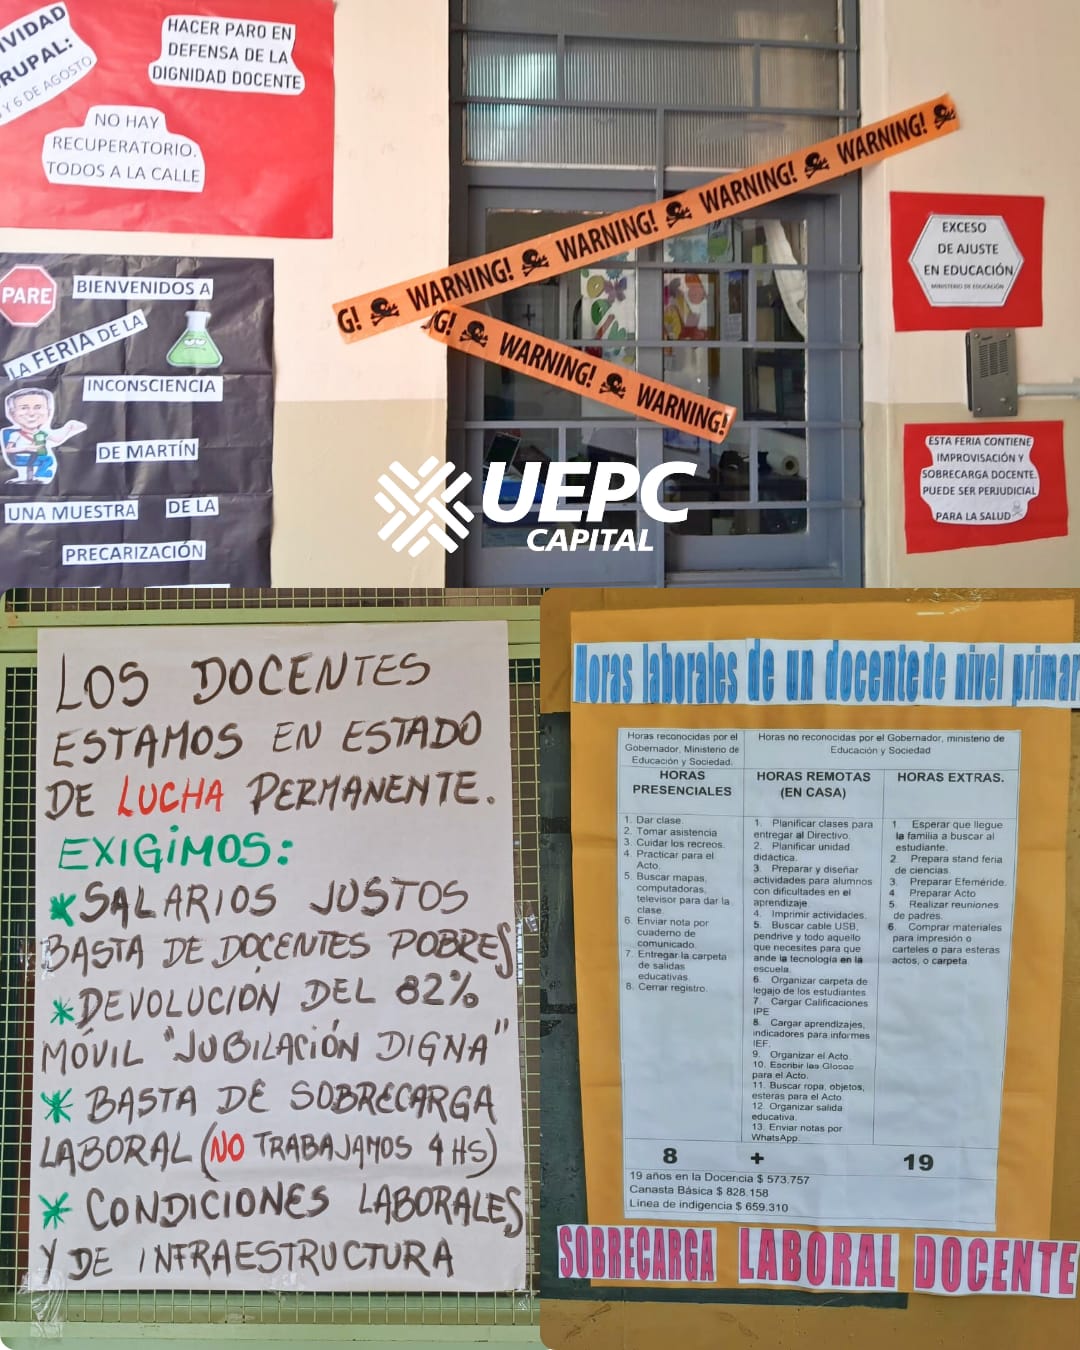 IVIDAD
RUPAL:
Y 6 DE AGOSTO
HACER PARO EN
DEFENSA DE LA
DIGNIDAD DOCENTE
NO HAY
RECUPERATORIO.
TODOS A LA CALLE
PARE
BIENVENIDOS A
LA FERIA DE LA
INCONSCIENCIA
DE MARTÍN
UNA MUESTRA DE LA
PRECARIZACIÓN
G! WARNING! WARNING! WARNING! WARNING!
G! WARNING! WARNING!
EXCESO
DE AJUSTE
EN EDUCACIÓN
MINISTERIO DE EDUCACIÓN
ESTA FERIA CONTIENE
IMPROVISACIÓN Y
SOBRECARGA DOCENTE.
PUEDE SER PERJUDICIAL
PARA LA SALUD
UEPC
CAPITAL
LOS DOCENTES
ESTAMOS EN ESTADO
DE LUCHA PERMANENTE.
EXIGIMOS:
* SALARIOS JUSTOS
BASTA DE DOCENTES POBRES
* DEVOLUCIÓN DEL 82%
MÓVIL "JUBILACIÓN DIGNA"
* BASTA DE SOBRECARGA
LABORAL (NO TRABAJAMOS 4 HS)
* CONDICIONES LABORALES
Y DE INFRAESTRUCTURA
Horas laborales de un docente de nivel primar
Horas reconocidas por el
Gobernador, Ministerio de
Educación y Sociedad.
Horas no reconocidas por el Gobernador, ministerio de
Educación y Sociedad
HORAS
PRESENCIALES
HORAS REMOTAS
(EN CASA)
HORAS EXTRAS.
1. Dar clase.
2. Tomar asistencia
3. Cuidar los recreos.
4. Practicar para el
Acto.
5. Buscar mapas,
computadoras,
televisor para dar la
clase.
6. Enviar nota por
cuaderno de
comunicado.
7. Entregar la carpeta
de salidas
educativas.
8. Cerrar registro.
1. Planificar clases para
entregar al Directivo.
2. Planificar unidad
didáctica.
3. Preparar y diseñar
actividades para alumnos
con dificultades en el
aprendizaje
4. Imprimir actividades.
5. Buscar cable USB,
pendrive y todo aquello
que necesites para que
ande la tecnología en la
escuela.
6. Organizar carpeta de
legajo de los estudiantes
7. Cargar Calificaciones
IPE
8. Cargar aprendizajes,
indicadores para informes
IEF.
9. Organizar el Acto.
10. Escribir las Glosas
para el Acto.
11. Buscar ropa, objetos,
esteras para el Acto
12. Organizar salida
educativa.
13. Enviar notas por
WhatsApp.
1 Esperar que llegue
la familia a buscar al
estudiante.
2 Prepara stand feria
de ciencias.
3 Preparar Efeméride.
4 Preparar Acto
5 Realizar reuniones
de padres.
6 Comprar materiales
para impresión o
carteles o para esteras
actos, o carpeta.
8 + 19
19 años en la Docencia $ 573.757
Canasta Básica $ 828.158
Linea de indigencia $ 659.310
SOBRECARGA LABORAL DOCENTE